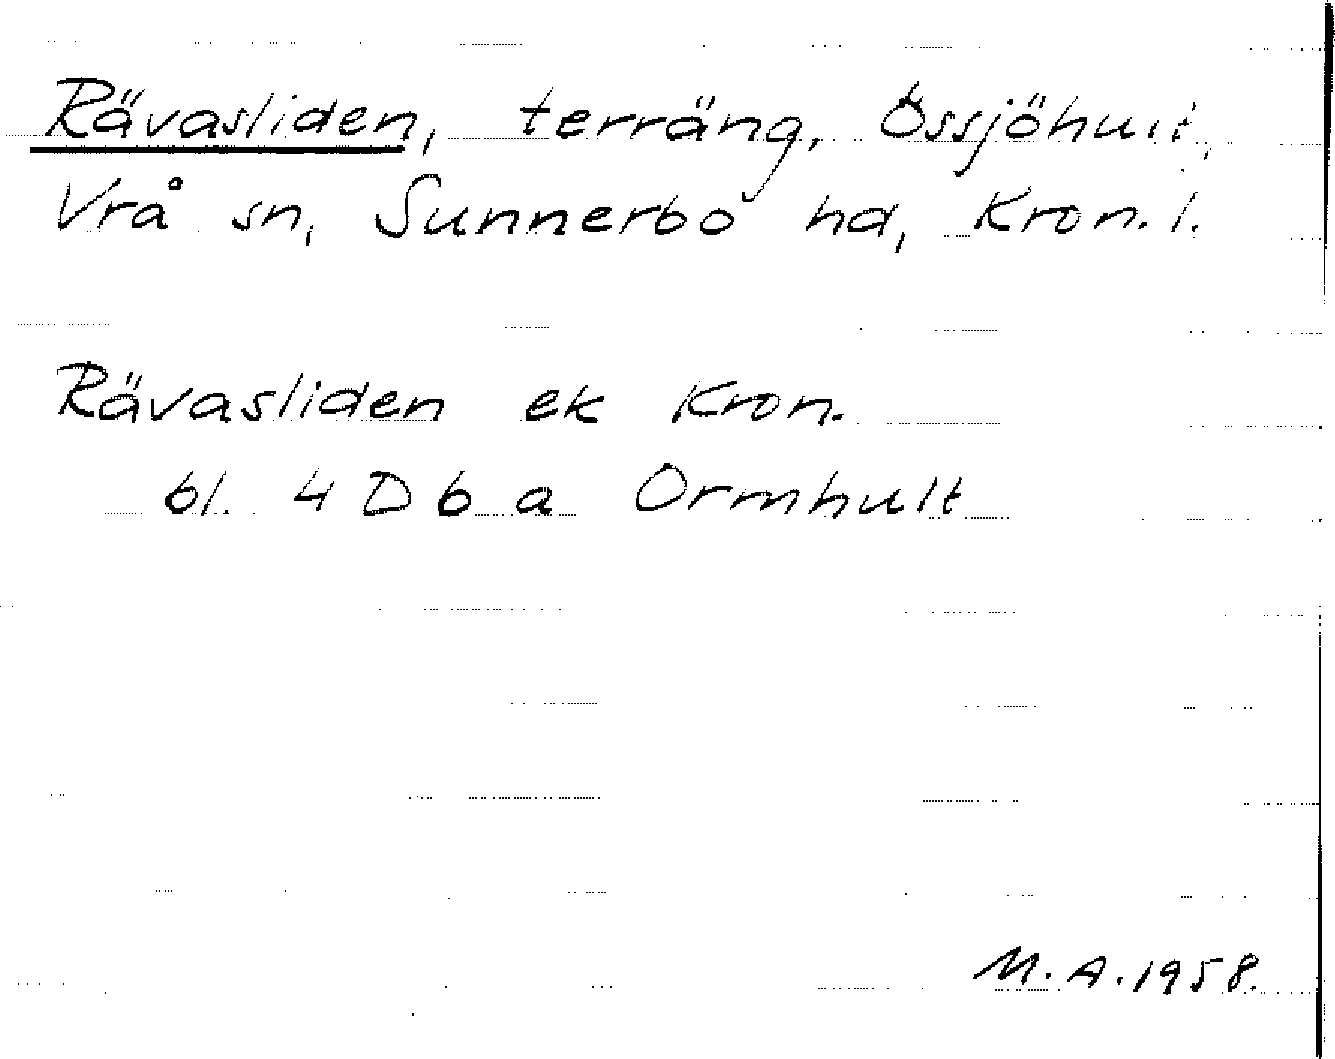 Rävasliden, terräng, Össjöhult,
Vrå sn, Sunnerbo hd, Kron. l.
Rävasliden ek Kron.
bl. 4 D b a Ormhult
M. A. 1958.